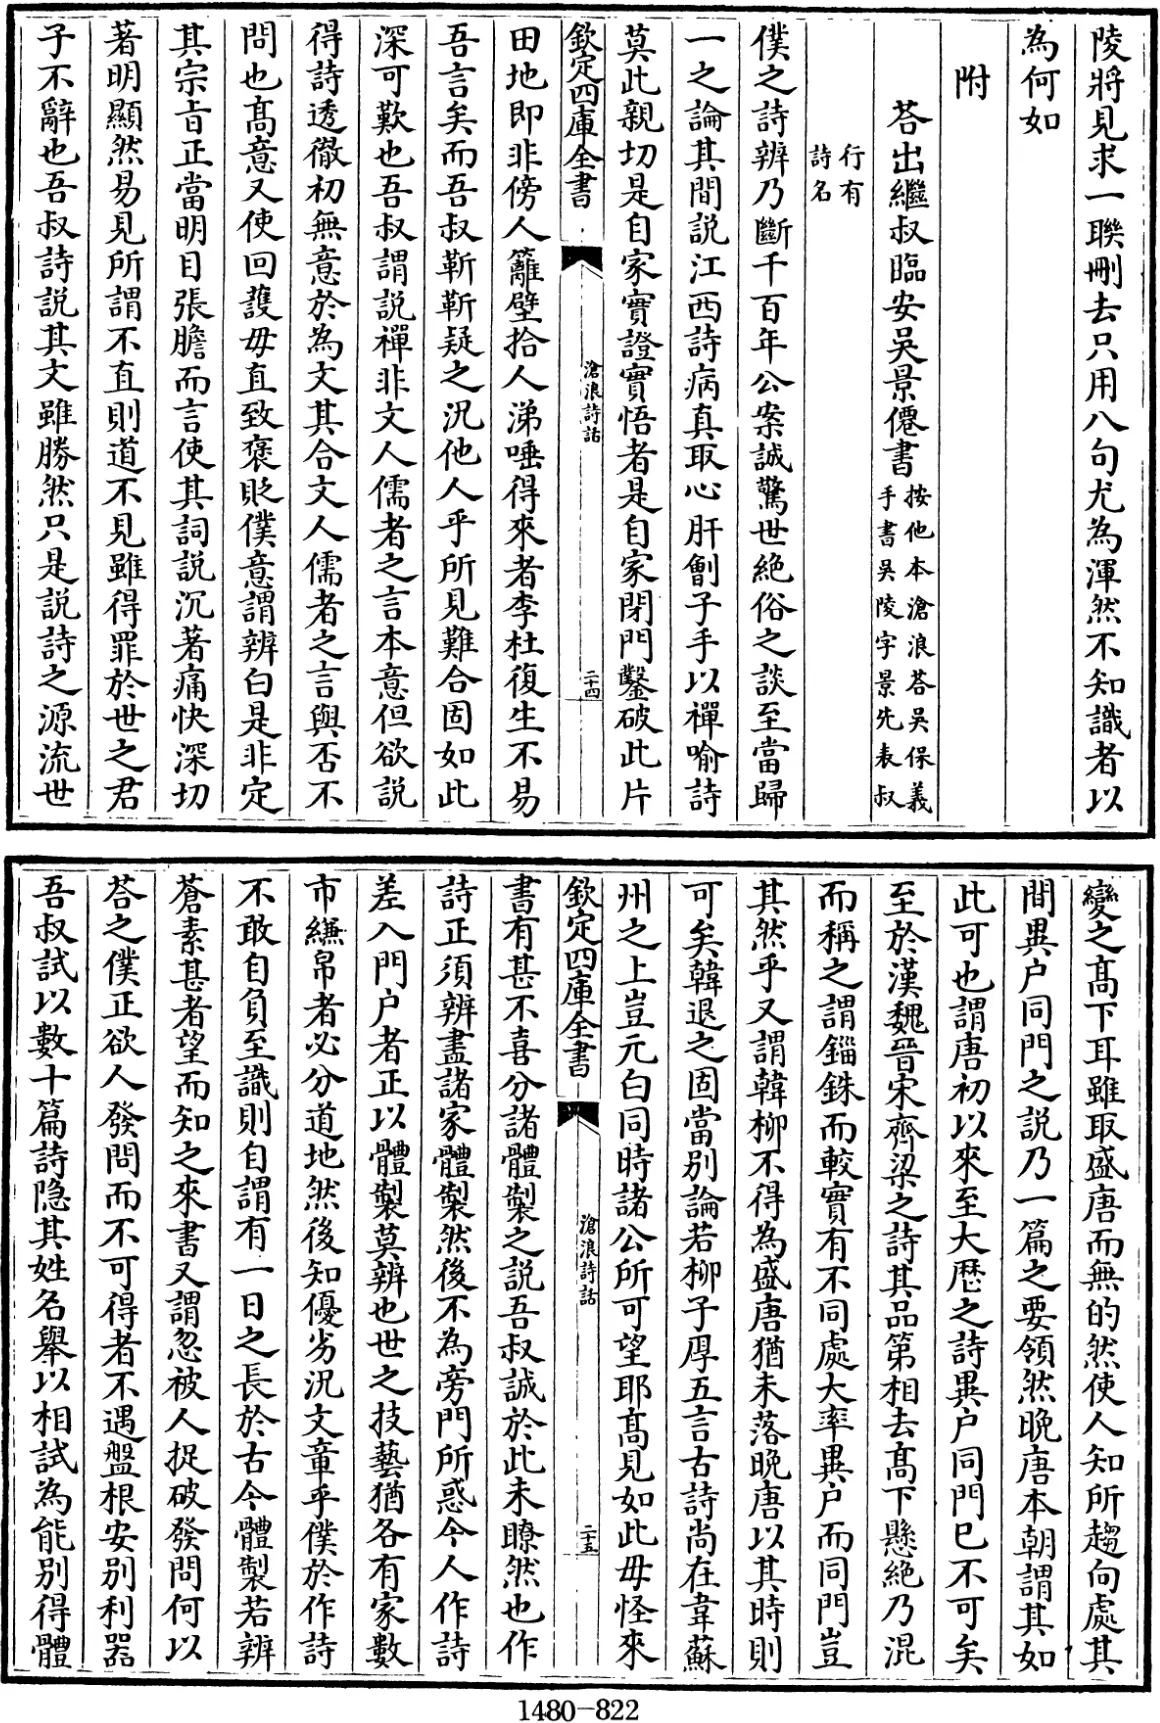 陵將見求一聯刪去只用八句尤為渾然不知識者以
為何如
附
荅出繼叔臨安吳景僊書按他本滄浪荅吳保義
手書吳陵字景先表叔
行有
詩名
僕之詩辨乃斷千百年公案誠驚世絶俗之談至當歸
一之論其間説江西詩病真取心肝劊子手以禪喻詩
莫此親切是自家實證實悟者是自家閉門鑿破此片
欽定四庫全書
滄浪詩話
二十四
田地即非傍人籬壁拾人涕唾得來者李杜復生不易
吾言矣而吾叔靳靳疑之況他人乎所見難合固如此
深可歎也吾叔謂説禪非文人儒者之言本意但欲説
得詩透徹初無意於為文其合文人儒者之言與否不
問也髙意又使回護毋直致褒貶僕意謂辨白是非定
其宗㫖正當明目張膽而言使其詞説沉著痛快深切
著明顯然易見所謂不直則道不見雖得罪於世之君
子不辭也吾叔詩説其文雖勝然只是説詩之源流世
變之髙下耳雖取盛唐而無的然使人知所趨向處其
間異户同門之説乃一篇之要領然晩唐本朝謂其如
此可也謂唐初以來至大厯之詩異户同門已不可矣
至於漢魏晉宋齊梁之詩其品第相去髙下懸絶乃混
而稱之謂錙銖而較實有不同處大率異户而同門豈
其然乎又謂韓柳不得為盛唐猶未落晚唐以其時則
可矣韓退之固當别論若柳子厚五言古詩尚在韋蘇
州之上豈元白同時諸公所可望耶髙見如此毋怪來
欽定四庫全書
滄浪詩話
二十五
書有甚不喜分諸體製之説吾叔誠於此未瞭然也作
詩正須辨盡諸家體製然後不為旁門所惑今人作詩
差入門户者正以體製莫辨也世之技藝猶各有家數
市縑帛者必分道地然後知優劣況文章乎僕於作詩
不敢自負至識則自謂有一日之長於古今體製若辨
蒼素甚者望而知之來書又謂忽被人捉破發問何以
荅之僕正欲人發問而不可得者不遇盤根安别利器
吾叔試以數十篇詩隐其姓名舉以相試為能别得體
1480-822